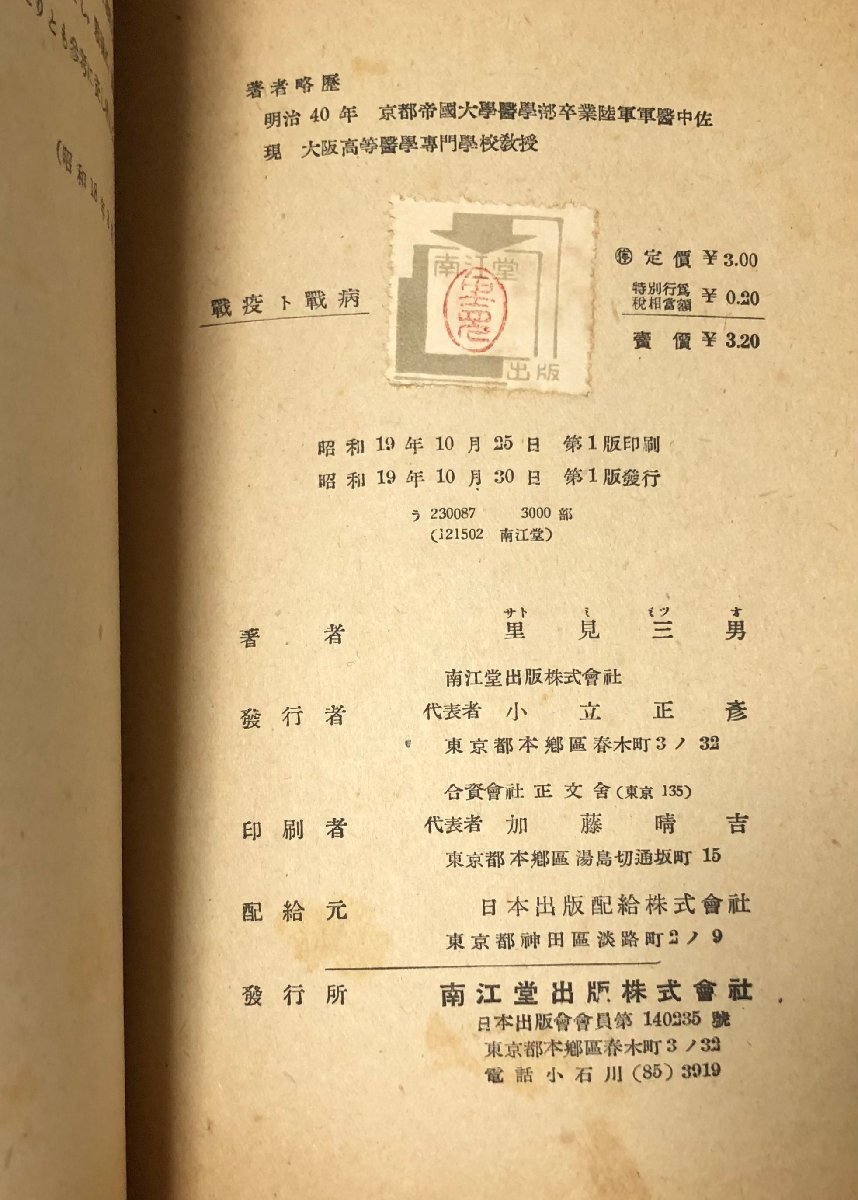 著者略歷
明治 40 年 京都帝國大學醫學部卒業陸軍軍醫中佐
現 大阪高等醫學專門學校敎授
戰疫ト戰病
南江堂
出版
㊝ 定價 ¥ 3.00
特別行爲
稅相當額 ¥ 0.20
賣價 ¥ 3.20
昭和 19 年 10 月 25 日 第 1 版印刷
昭和 19 年 10 月 30 日 第 1 版發行
う 230087 3000 部
(121502 南江堂)
サト ミ ミツ オ
著者 里見三男
南江堂出版株式會社
發行者 代表者 小立正彥
東京都本鄕區春木町 3 ノ 32
合資會社 正文舍 (東京 135)
印刷者 代表者 加藤晴吉
東京都本鄕區湯島切通坂町 15
配給元 日本出版配給株式會社
東京都神田區淡路町 2 ノ 9
發行所 南江堂出版株式會社
日本出版會會員第 140235 號
東京都本鄕區春木町 3 ノ 32
電話小石川 (85) 3919